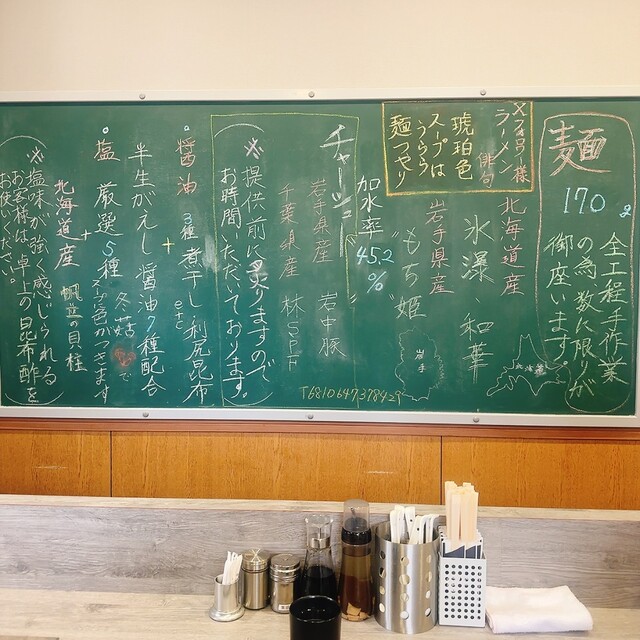 麺
170g
全工程手作業
の為、数に限りが
御座います
Xフォロワー様
ラーメン俳句
琥珀色
スープは
うららら
麺つやり
北海道産
氷瀑、和華
北海道
岩手県産
"もち姫"
岩手
加水率
45.2
%
チャーシュー
岩手県産 岩中豚
千葉県産 林SPF
※提供前に炙りますので
お時間いただいております。
T6810647378429
。醤油 3種煮干し利尻昆布
etc
+
半生がえし醤油7種配合
。塩 厳選5種 冬菇
で
色がつきます
+
北海道産 帆立の貝柱
※塩味が強く感じられる
お客様は、卓上の昆布酢を
お使いください。